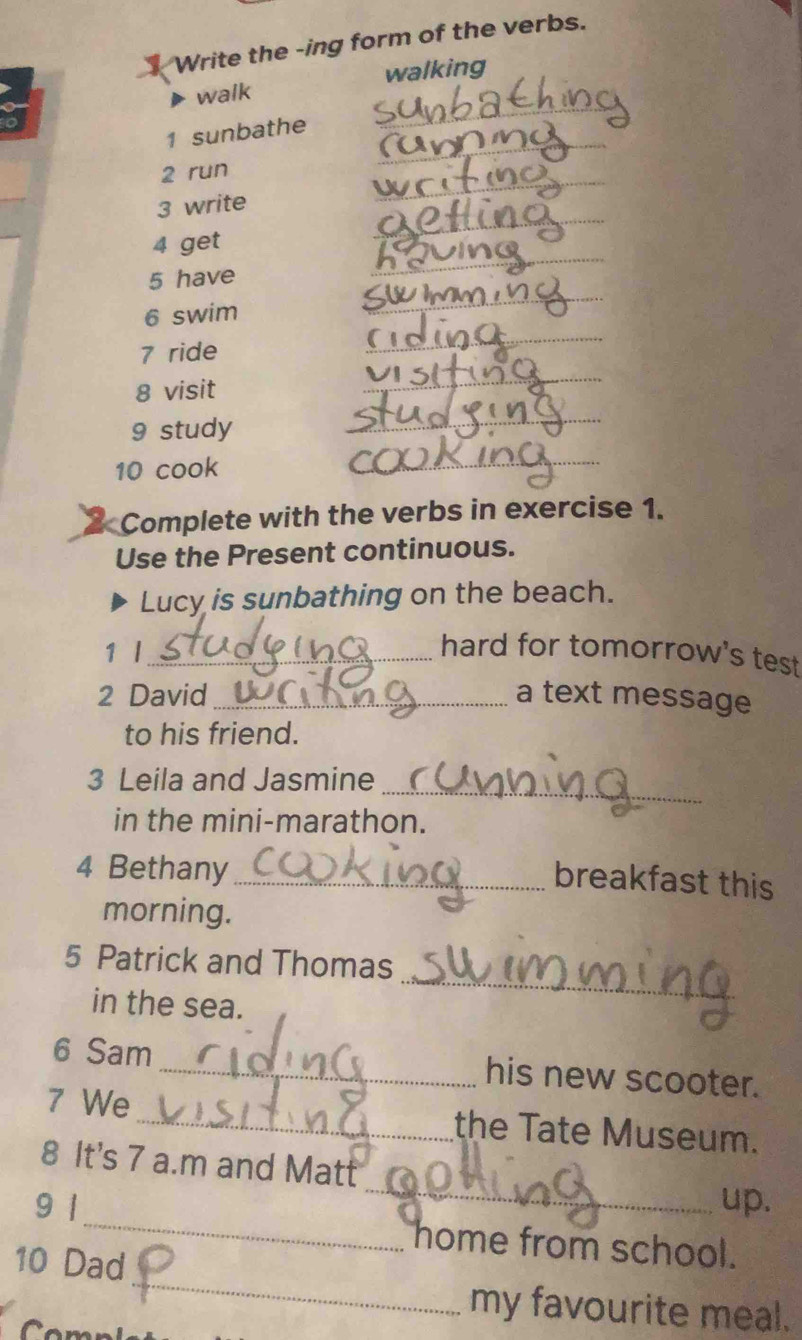 1 Write the -ing form of the verbs.
▶ walk walking
1 sunbathe sunbathing
2 run running
3 write writing
4 get getting
5 have having
6 swim swimming
7 ride riding
8 visit visiting
9 study studying
10 cook cooking
2 Complete with the verbs in exercise 1.
Use the Present continuous.
▶ Lucy is sunbathing on the beach.
1 I studying hard for tomorrow's test
2 David writing a text message
to his friend.
3 Leila and Jasmine running
in the mini-marathon.
4 Bethany cooking breakfast this
morning.
5 Patrick and Thomas swimming
in the sea.
6 Sam riding his new scooter.
7 We visiting the Tate Museum.
8 It's 7 a.m and Matt gotting up.
9 I home from school.
10 Dad my favourite meal.